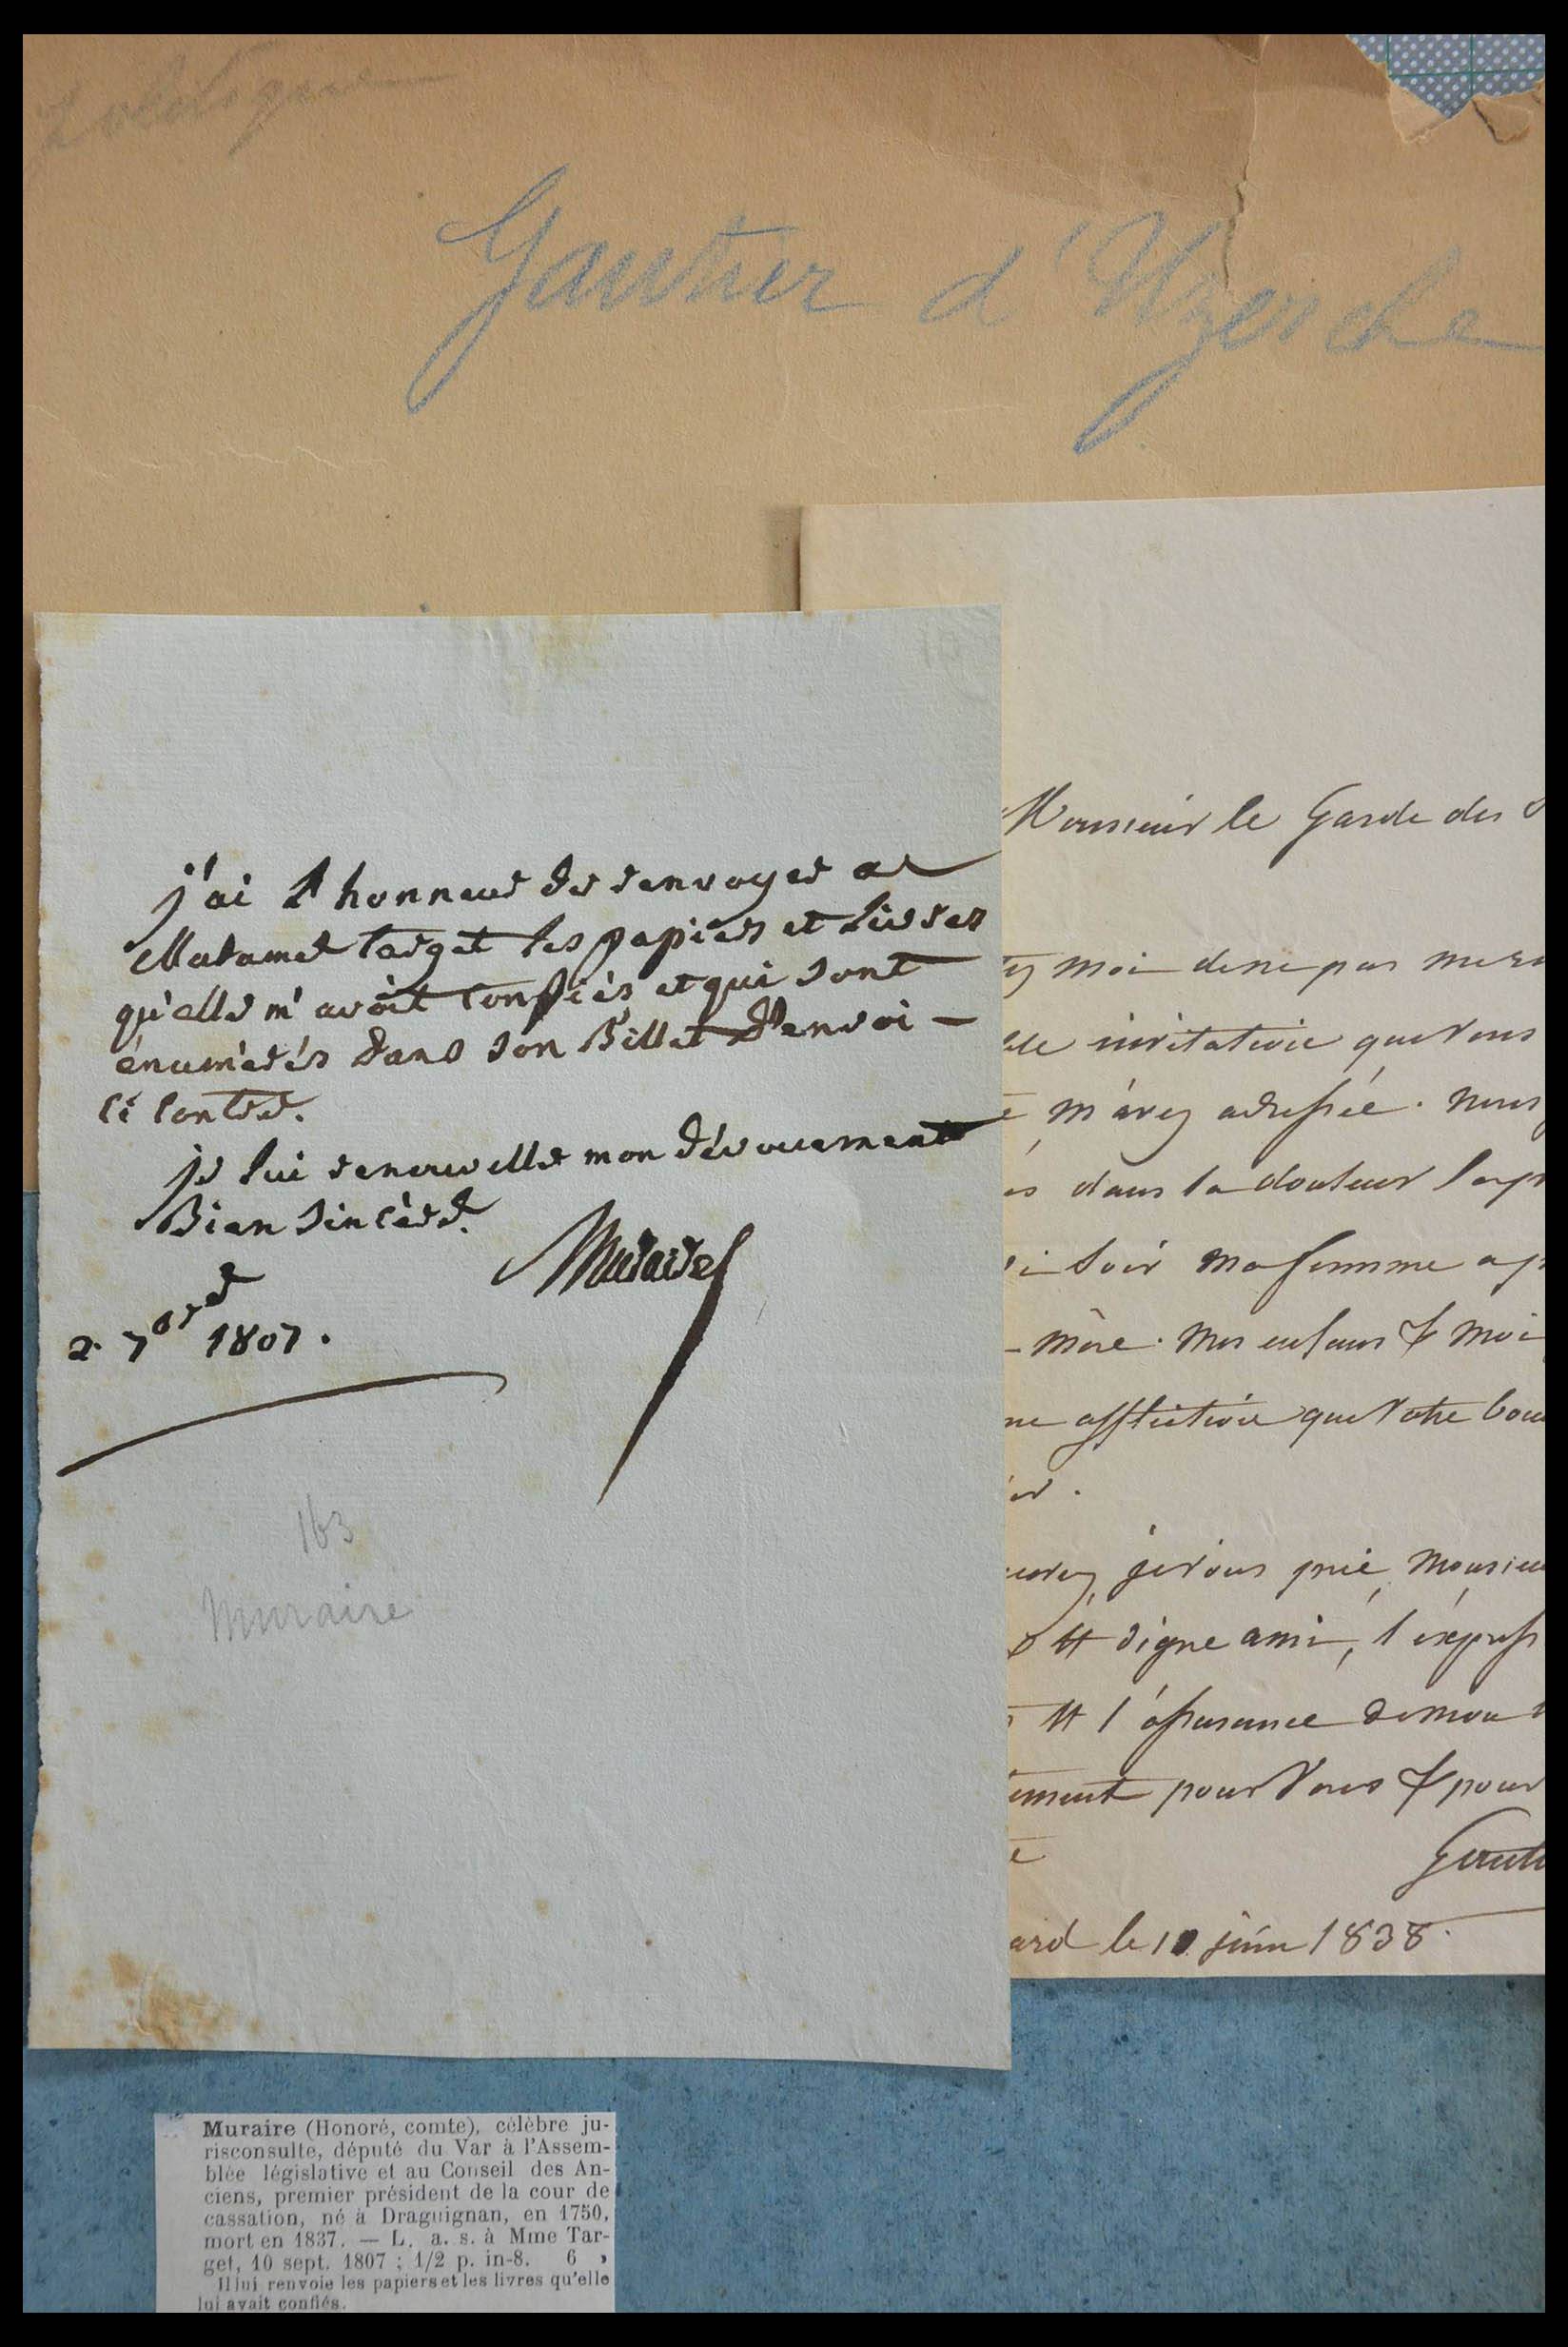 Gautier d'Uzerche
j'ai l'honneur de renvoyer a
Madame Target les papiers et livres
qu'elle m'avoit confiés et qui sont
énumérés dans son Billet d'envoi –
ci contre.
je lui renouvelle mon dévouement
Bien sincère.
Muraire
2. 7bre 1807.
163
Muraire
Monsieur le Garde des
moi de ne pas
invitation que vous
m'avez adressée. nous
dans la douleur
soir ma femme
mère. Mes enfans & moi
affliction que votre
je vous prie, Monsieu
& digne ami, l'express
et l'assurance de mon
ement pour vous & pour
Gauti
ard le 10 juin 1838.
Muraire (Honoré, comte), célèbre ju-
risconsulte, député du Var à l'Assem-
blée législative et au Conseil des An-
ciens, premier président de la cour de
cassation, né à Draguignan, en 1750,
mort en 1837. — L. a. s. à Mme Tar-
get, 10 sept. 1807 ; 1/2 p. in-8. 6 »
Il lui renvoie les papiers et les livres qu'elle
lui avait confiés.